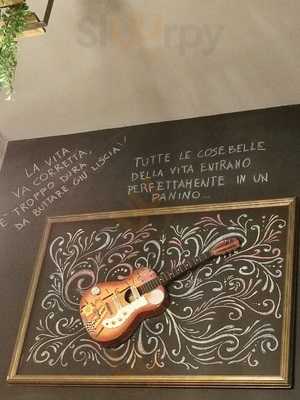 LA VITA
VA CORRETTA,
È TROPPO DURA
DA BUTTARE GIÙ LISCIA!
TUTTE LE COSE BELLE
DELLA VITA ENTRANO
PERFETTAMENTE IN UN
PANINO...
Sluurpy